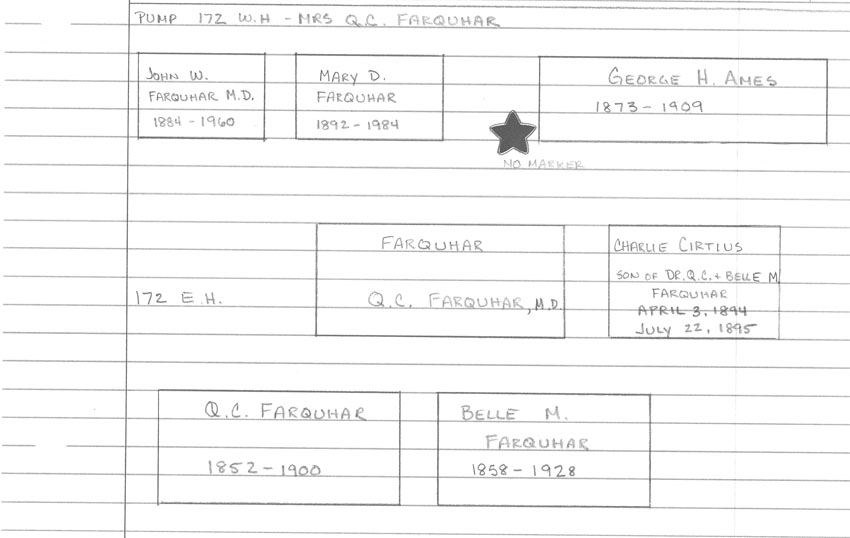 PUMP 172 W.H - MRS Q.C. FARQUHAR
JOHN W.
FARQUHAR M.D.
1884 - 1960
MARY D.
FARQUHAR
1892 - 1984
GEORGE H. AMES
1873 - 1909
NO MARKER
FARQUHAR
172 E.H.
Q.C. FARQUHAR, M.D.
CHARLIE CIRTIUS
SON OF DR. Q.C. + BELLE M.
FARQUHAR
APRIL 3, 1894
JULY 22, 1895
Q.C. FARQUHAR
1852 - 1900
BELLE M.
FARQUHAR
1858 - 1928